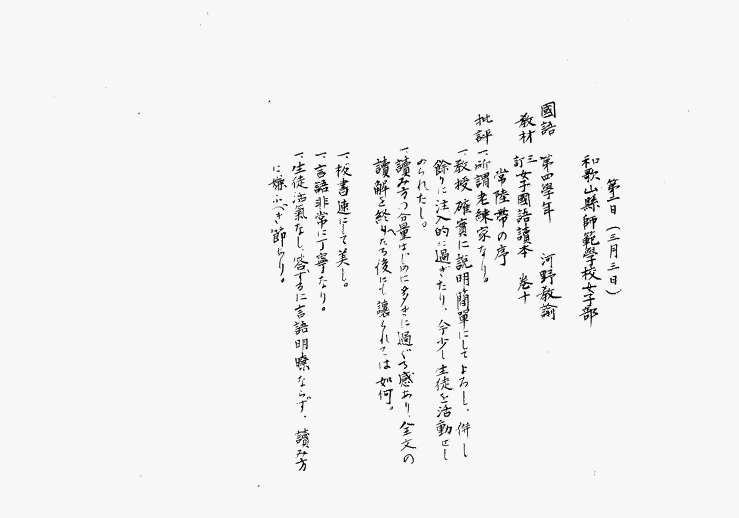 第一日(三月三日)
和歌山縣師範學校女子部
國語 第四學年 河野敎諭
敎材 三訂女子國語讀本 卷十
常陸帶の序
批評 一、所謂老練家なり。
一、敎授確實に說明簡單にしてよろし、併し
餘りに注入的に過ぎたり、今少し生徒を活動せし
められたし。
一、讀み方の分量はじめに多きに過ぐる感あり、全文の
讀解を終りたる後にも讓られては如何。
一、板書速にして美し。
一、言語非常に丁寧なり。
一、生徒活氣なし、答ずるに言語明瞭ならず、讀み方
に嫌ふべき節あり。